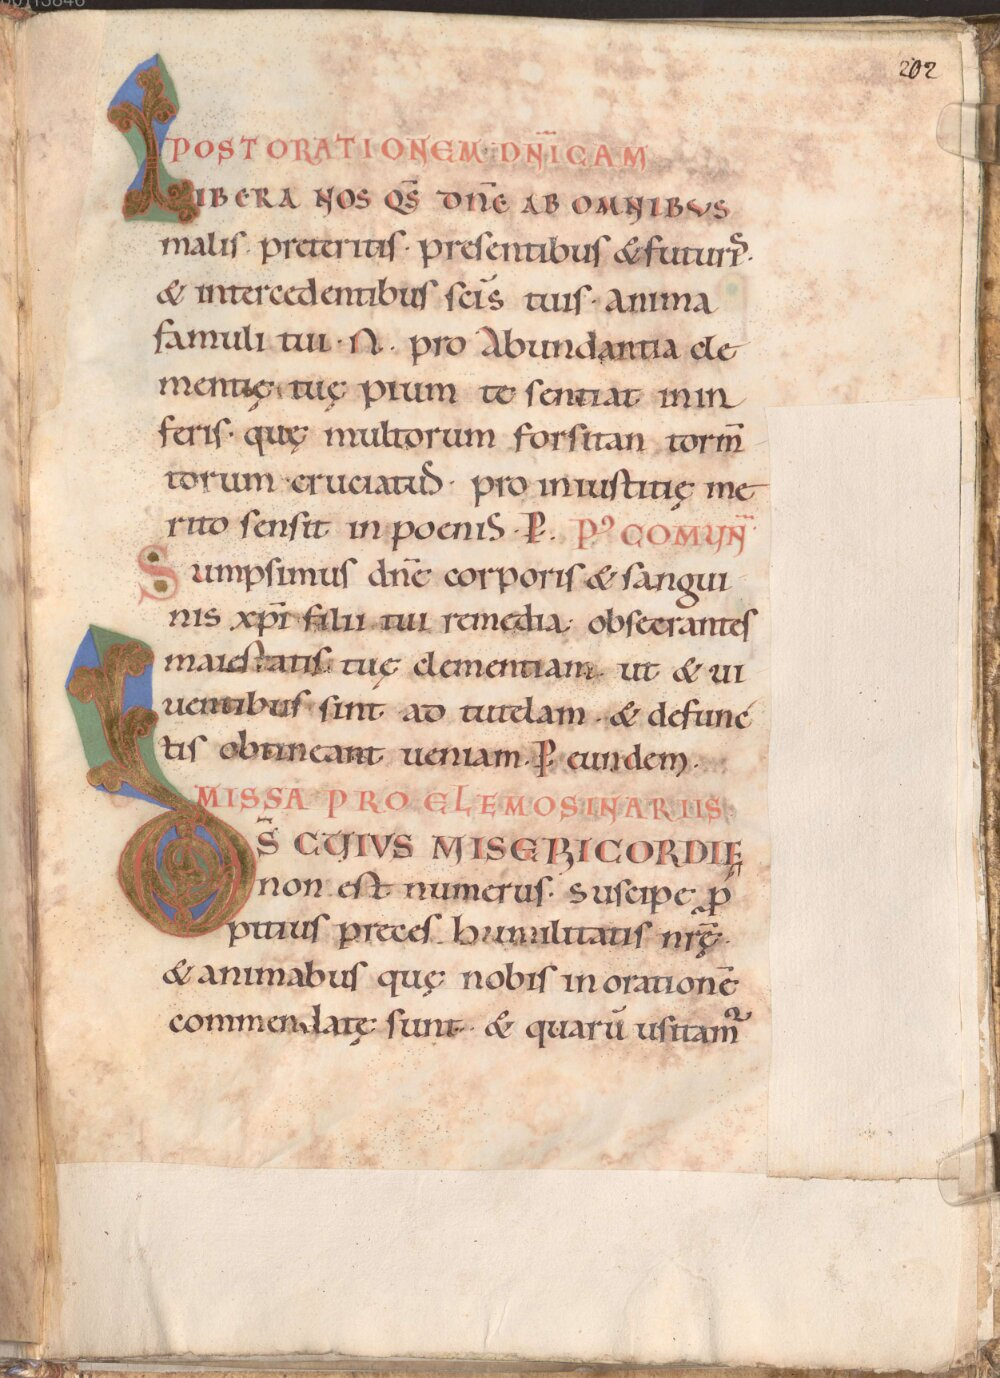 202
POST ORATIONEM DÑICAM
LIBERA NOS QS̄ DÑE AB OMNIBVS
malis · preteritis · presentibus & futuris ·
& intercedentibus scīs tuis · anima
famuli tui · N · pro abundantia cle
mentię tuę pium te sentiat in in
feris · quę multorum forsitan torm̄
torum cruciatus · pro iniustitię me
rito sensit in poenis · P. P' COMVN̄
Sumpsimus dn̄e corporis & sangui
nis xp̄i filii tui remedia · obsecrantes
maiestatis tuę clementiam · ut & ui
uentibus sint ad tutelam · & defunc
tis obtineant ueniam · P eundem ·
MISSA PRO ELEMOSINARIIS ·
DS̄ CUIVS MISERICORDIĘ
non est numerus · suscipe p
pitius preces humilitatis nr̄ę ·
& animabus quę nobis in orationē
commendatę sunt · & quarū usitam²